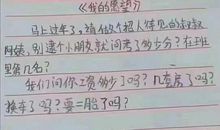 《我的愿望》
马上过年了,请有些个招人待见的叔叔
阿姨,别逮个小朋友就问考了多少分?在班
里第几名?
我们问你工资多少了吗?几套房了吗?
换车了吗?要二胎了吗?